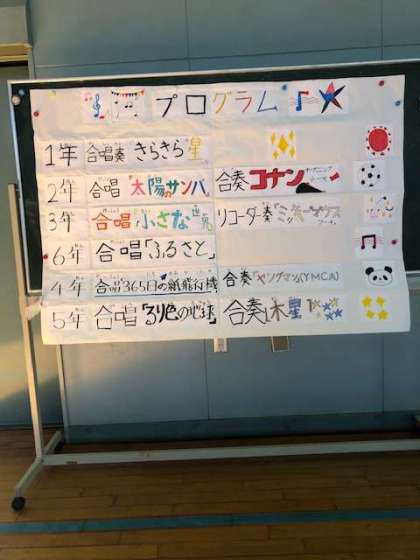 プログラム
1年 合唱奏 きらきら星
2年 合唱 "太陽のサンバ" 合奏 コナン
3年 合唱 小さな世界 リコーダー奏 "ミッキーマウス
6年 合唱「ふるさと」
4年 合唱「365日の紙飛行機 合奏「ヤングマン(YMCA)
5年 合唱「るり色の地球」 合奏「木星」